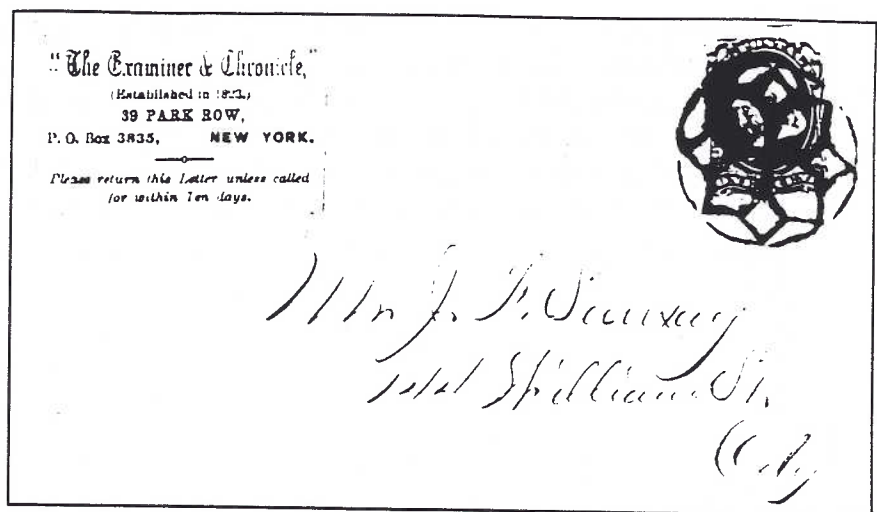 "The Examiner & Chronicle,"
(Established in 1823.)
39 PARK ROW,
P. O. Box 3835, NEW YORK.
Please return this Letter unless called
for within Ten days.
Mr J. F.
William St.
City